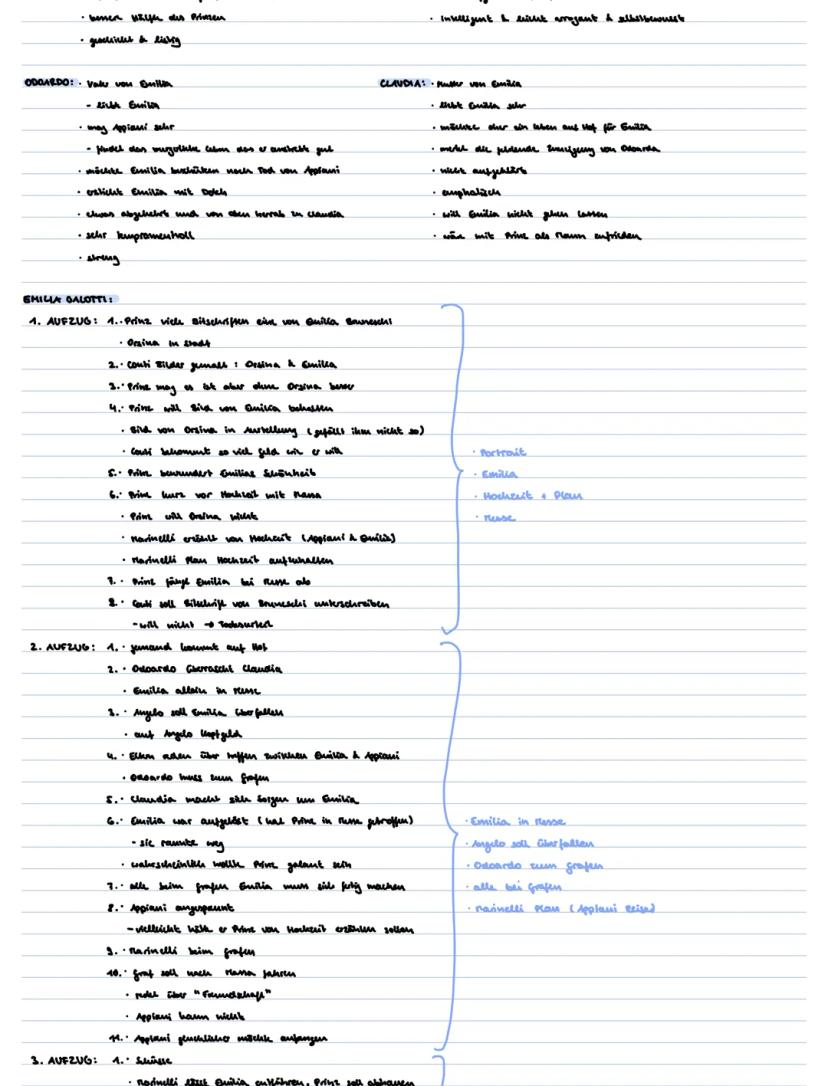 · bessere Hälfte des Prinzen
· geschickt & listig
· intelligent & leicht arrogant & selbstbewusst
ODOARDO: · Vater von Emilia
- liebt Emilia
· mag Appiani sehr
- findet das Leben das er anstrebt gut
· möchte Emilia beschützen nach Tod von Appiani
· ersticht Emilia mit Dolch
· etwas abgekehrt und von oben herrab zu Claudia
· sehr tempramentvoll
· streng
CLAUDIA: · Mutter von Emilia
· liebt Emilia sehr
· möchte eher ein leben auf Hof für Emilia
· merkt die fehlende Zuneigung von Odoardo
· nicht aufgeklärt
· emphatisch
· will Emilia nicht gehen lassen
· wär mit Prinz als Mann zufrieden
EMILIA GALOTTI:
1. AUFZUG: 1. · Prinz viele Bitschriften eine von Emilia Bruneschi
· Orsina in Stadt
2. · Conti Bilder gemalt : Orsina & Emilia
3. · Prinz mag es ist aber ohne Orsina besser
4. · Prinz will Bild von Emilia behalten
· Bild von Orsina in Austellung (gefällt ihm nicht so)
· Conti bekommt so viel Geld wie er will
5. · Prinz bewundert Emilias Schönheit
6. · Prinz kurz vor Hochzeit mit Massa
· Prinz will Orsina nicht
· Marinelli erzählt von Hochzeit (Appiani & Emilia)
· Marinelli Plan Hochzeit aufzuhalten
7. · Prinz fängt Emilia bei Messe ab
8. · Conti soll Bitschrift von Bruneschi unterschreiben
- will nicht → Todesurteil
· Portrait
· Emilia
· Hochzeit + Plan
· Messe
2. AUFZUG: 1. · jemand kommt auf Hof
2. · Odoardo überrascht Claudia
· Emilia allein in Messe
3. · Angelo soll Emilia überfallen
· auf Angelo Kopfgeld
4. · Eltern reden über treffen zwischen Emilia & Appiani
· Odoardo muss zum Grafen
5. · Claudia macht sich Sorgen um Emilia
6. · Emilia war aufgelöst (hat Prinz in Messe getroffen)
- sie rannte weg
· wahrscheinlich wollte Prinz galant sein
7. · alle beim Grafen Emilia muss sich fertig machen
8. · Appiani angespannt
- vielleicht hätte er Prinz von Hochzeit erzählen sollen
9. · Marinelli beim Grafen
10. · Graf soll nach Massa fahren
· redet über "Freundschaft"
· Appiani kann nicht
11. · Appiani glücklicher möchte anfangen
· Emilia in Messe
· Angelo soll überfallen
· Odoardo zum Grafen
· alle bei Grafen
· Marinelli Plan (Appiani Reise)
3. AUFZUG: 1. · Schüsse
· Marinelli lässt Emilia entführen, Prinz soll abhauen